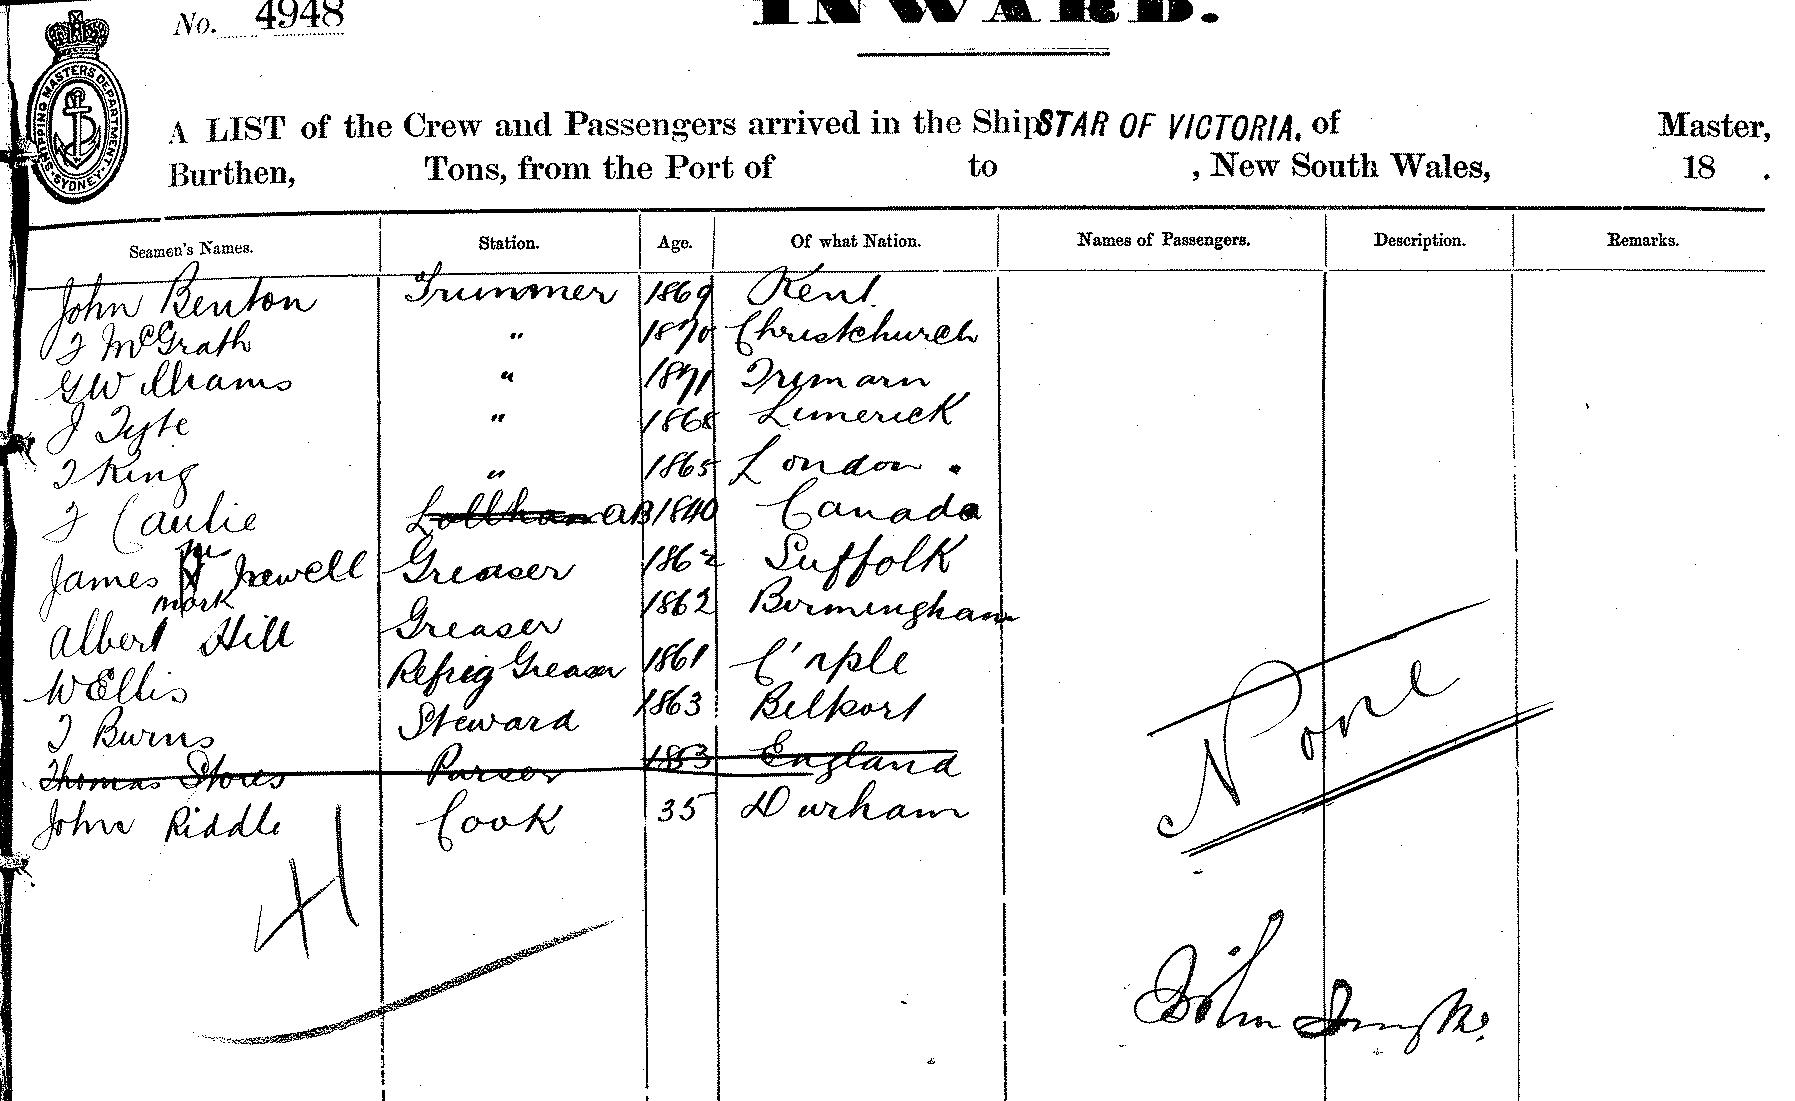 No. 4948
INWARD.
SHIPPING MASTERS DEPARTMENT SYDNEY
A LIST of the Crew and Passengers arrived in the Ship STAR OF VICTORIA. of Master,
Burthen, Tons, from the Port of to , New South Wales, 18 .
Seamen's Names. Station. Age. Of what Nation. Names of Passengers. Description. Remarks.
John Benton Trimmer 1869 Kent
J McGrath " 1870 Christchurch
G Williams " 1871
J Tyte " 1868 Limerick
J King " 1865 London
J AB 1840 Canada
James Newell Greaser 1862 Suffolk
mark
Albert Hill Greaser 1862 Birmingham
W Ellis Refrig Greaser 1861
J Burns Steward 1863
Thomas Stores Purser 1853 England
John Riddle Cook 35 Durham
None
John